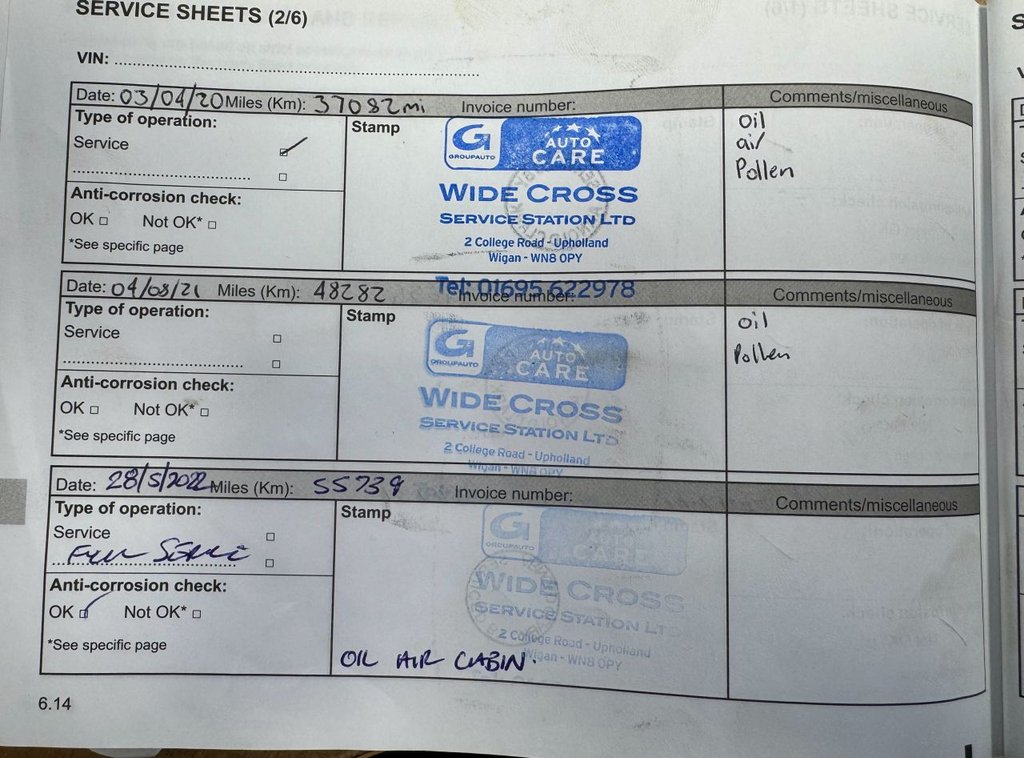 SERVICE SHEETS (2/6)
VIN:
Date: 03/04/20 Miles (Km): 37082mi Invoice number: Comments/miscellaneous
Type of operation:
Service
Stamp
GROUPAUTO
AUTO
CARE
WIDE CROSS
SERVICE STATION LTD
2 College Road - Upholland
Wigan - WN8 0PY
Tel: 01695 622978
Oil
air
Pollen
Anti-corrosion check:
OK Not OK*
*See specific page
Date: 04/08/21 Miles (Km): 48282 Invoice number: Comments/miscellaneous
Type of operation:
Service
Stamp
GROUPAUTO
AUTO
CARE
WIDE CROSS
SERVICE STATION LTD
2 College Road - Upholland
Wigan - WN8 0PY
Oil
Pollen
Anti-corrosion check:
OK Not OK*
*See specific page
Date: 28/5/2022 Miles (Km): 55739 Invoice number: Comments/miscellaneous
Type of operation:
Service
Full Service
Stamp
GROUPAUTO
AUTO
CARE
WIDE CROSS
SERVICE STATION LTD
2 College Road - Upholland
Wigan - WN8 0PY
OIL AIR CABIN.
Anti-corrosion check:
OK Not OK*
*See specific page
6.14